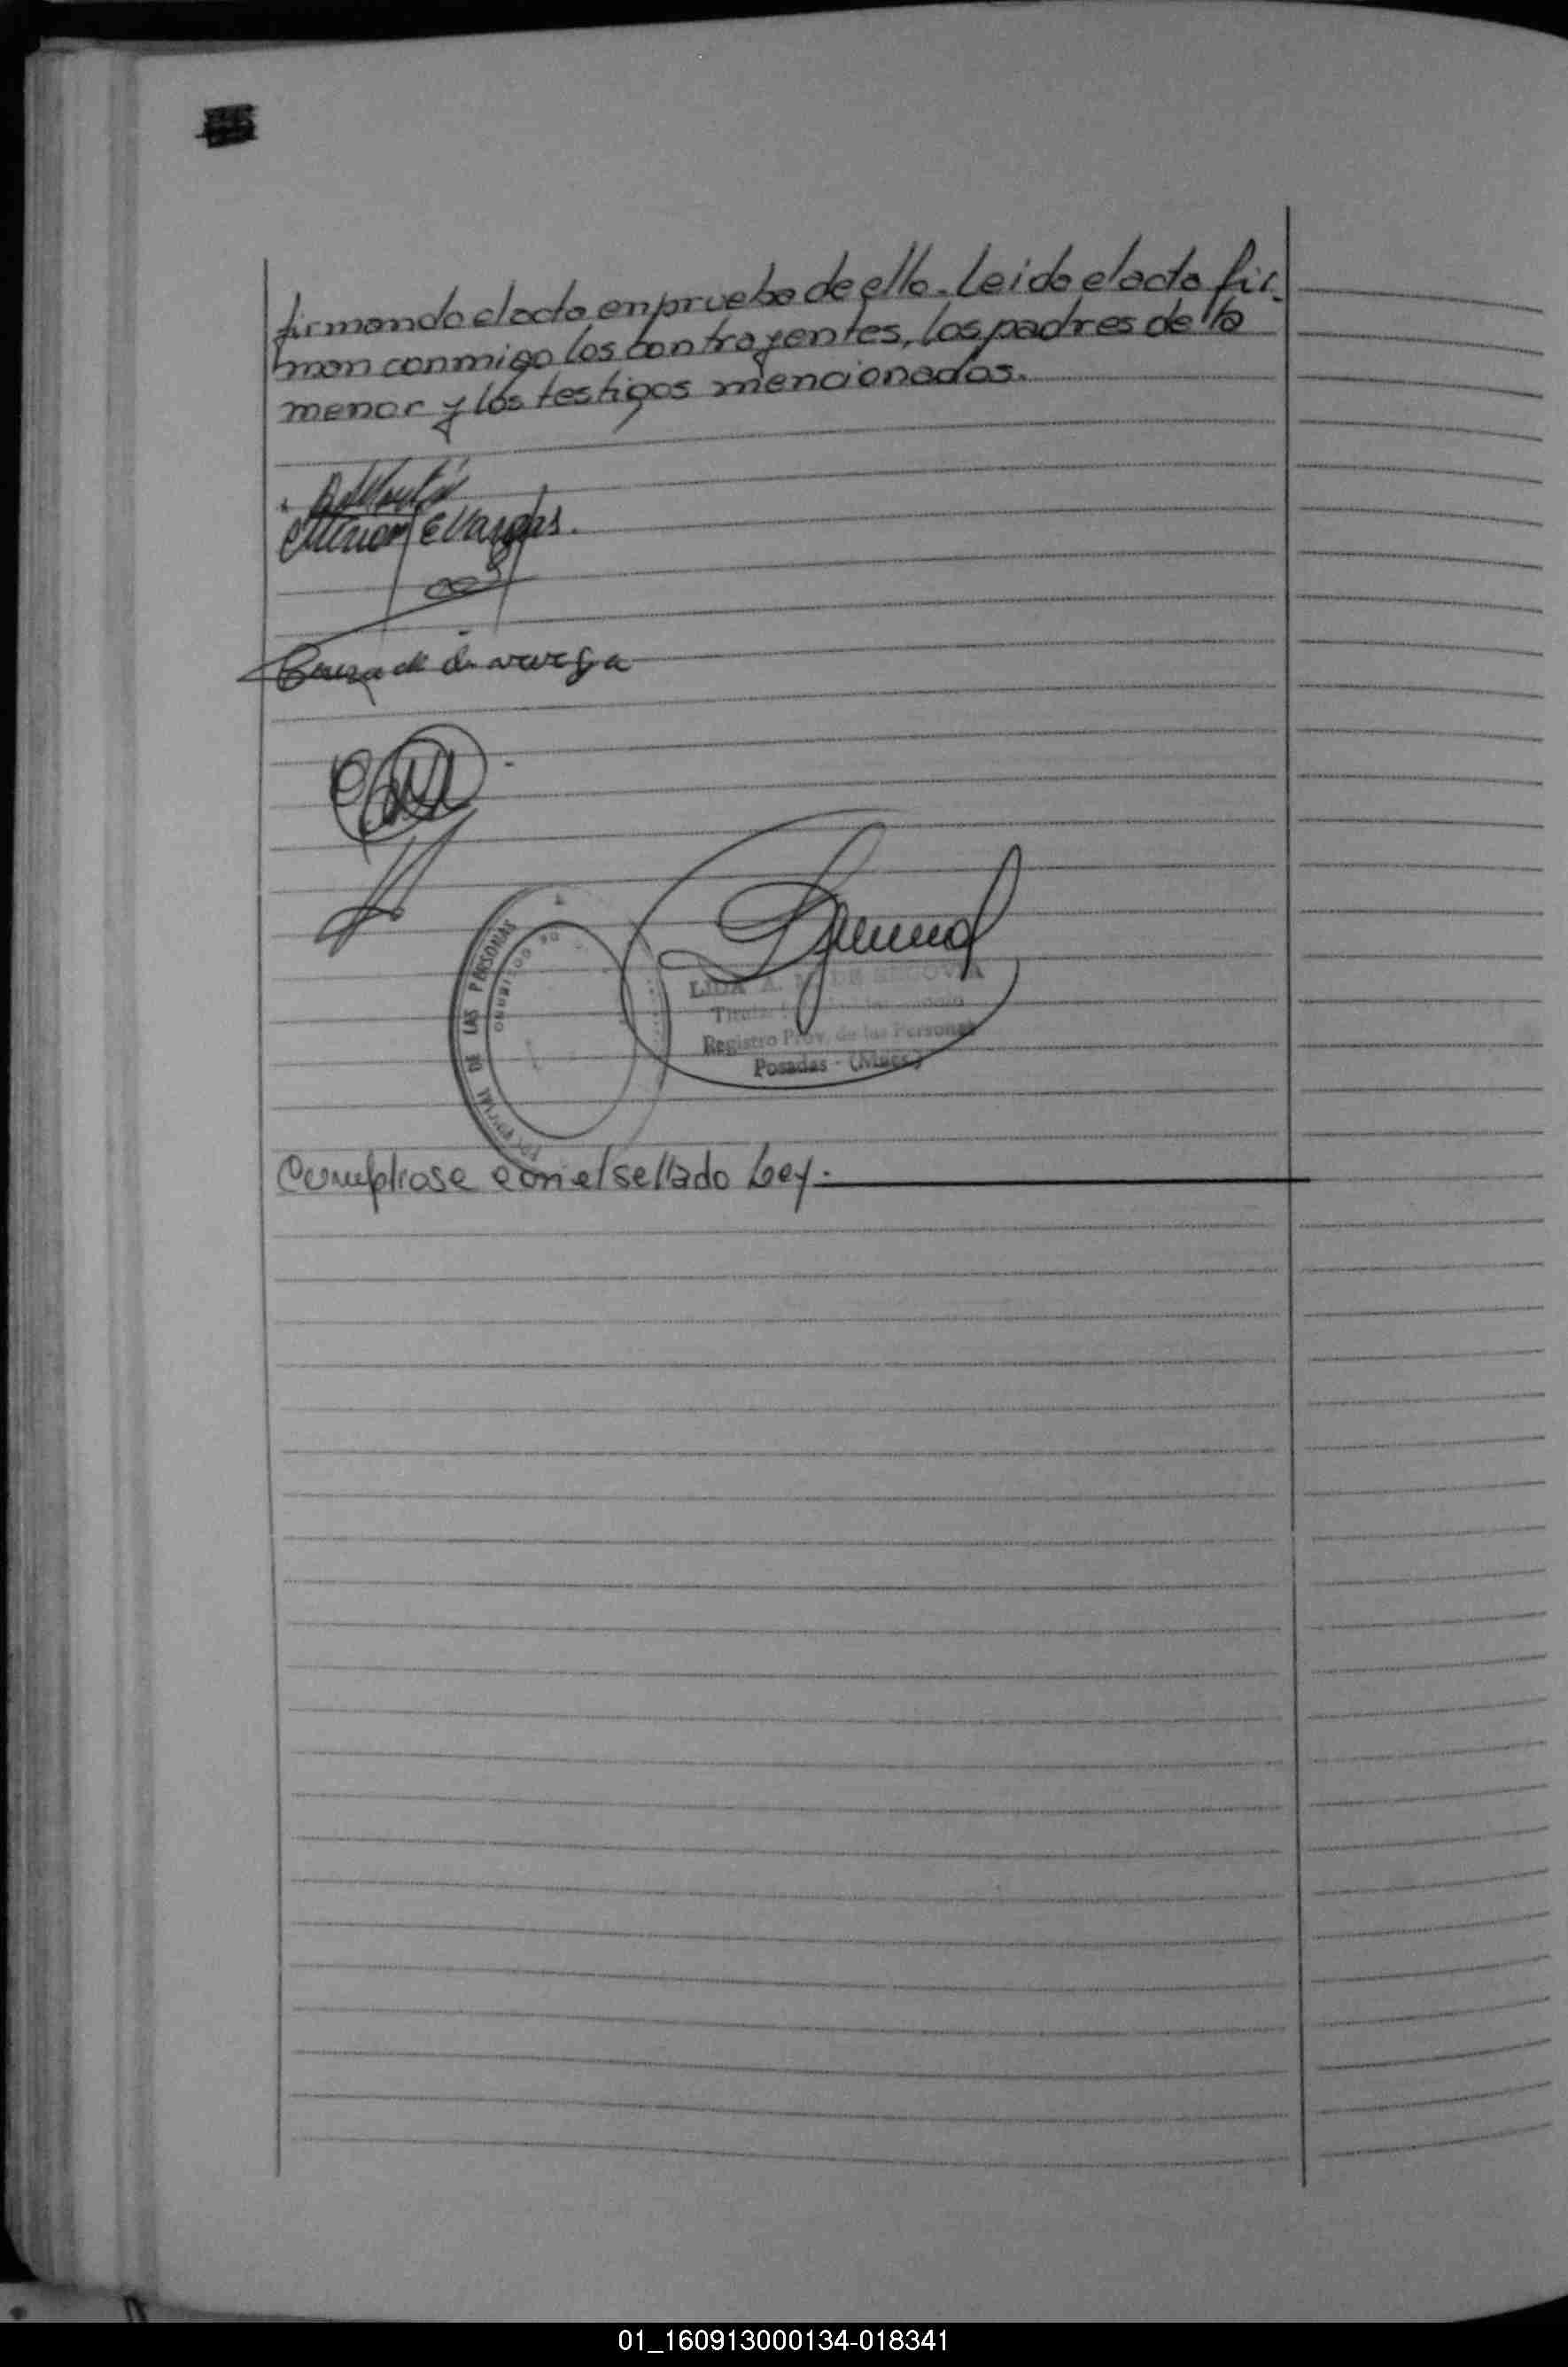 firmando el acta en prueba de ello. Leida el acta fir-
man conmigo los contrayentes, los padres de la
menor y los testigos mencionados.
Miriam E Vargas.
PROVINCIAL DE LAS PERSONAS
LIDA A. M. DE SEGOVIA
Titular
Registro Prov. de las Personas
Posadas - (Mnes.)
Cumpliose con el sellado Ley.
01_160913000134-018341